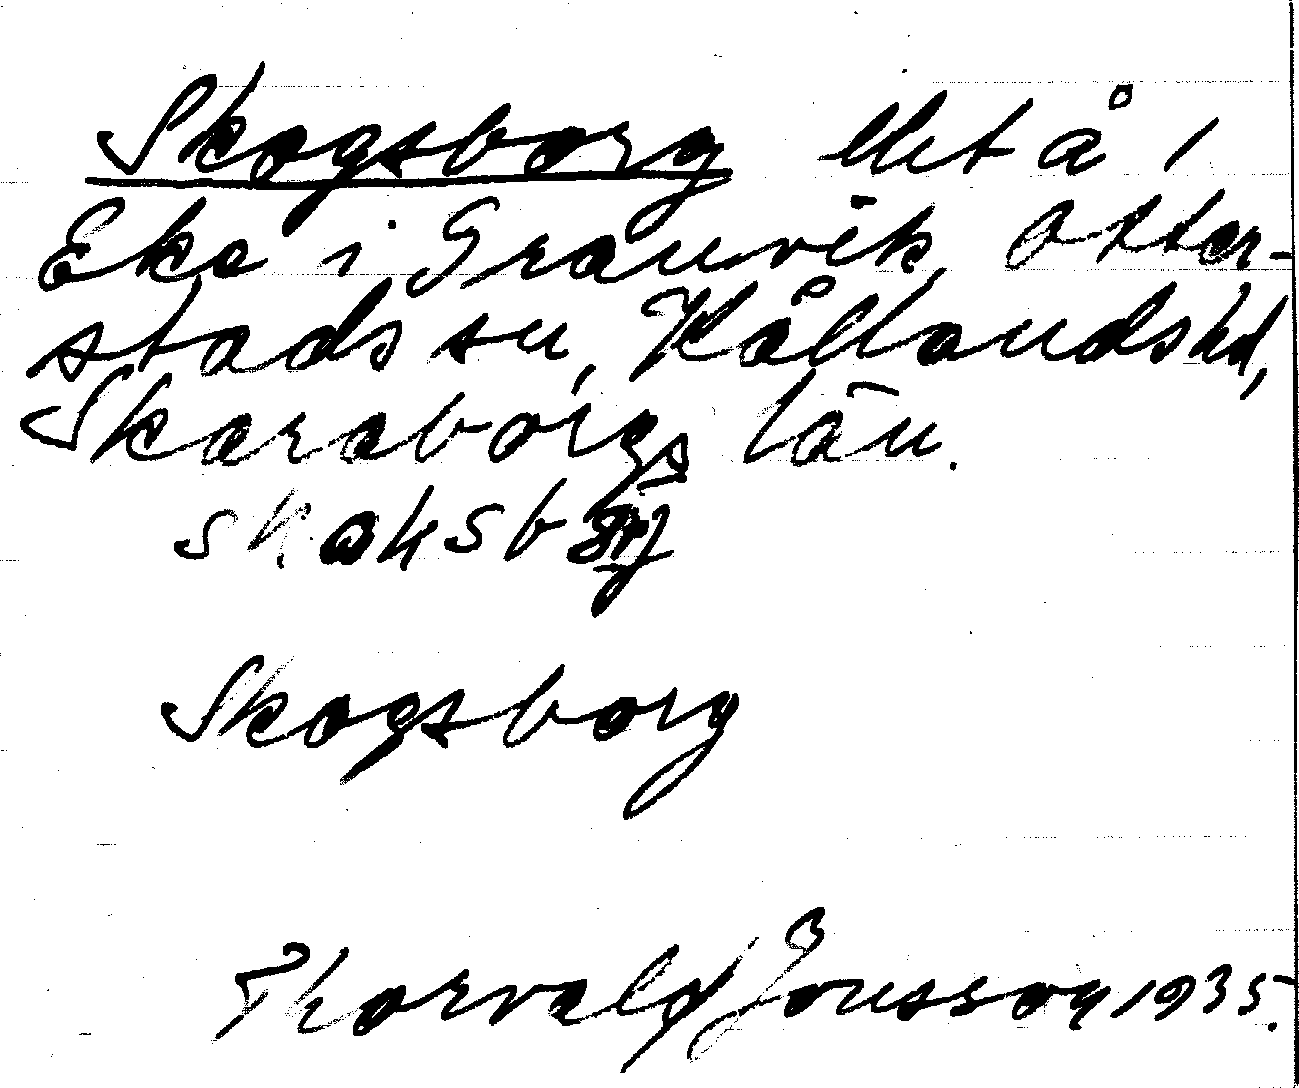 Skogsborg llt å 1/
Eke i Granvik, Otter-
stads sn, Kållands hd,
Skaraborgs län.
Skogsborg
Thorvald Jonsson 1935.